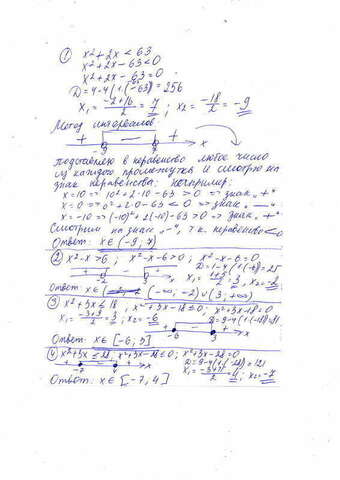 ① x²+2x < 63
x²+2x-63<0
x²+2x-63=0
D=4-4·1·(-63)=256
x₁= -2+16/2 = 7/2 ; x₂= -18/2 = -9
Метод интервалов.
+ - + x
-9 7
подставляю в неравенство любое число
из каждого промежутка и смотрю на
знак неравенства: например:
x=10 => 10²+2·10-63 >0 => знак „+"
x=0 => 0²+2·0-63 <0 => знак „-"
x=-10 => (-10)²+2(-10)-63>0 => знак „+"
Смотрим на знак „-", т.к. неравенство <0
Ответ: x∈ (-9; 7)
② x²-x>6 ; x²-x-6>0 ; x²-x-6=0
D=1-4·1·(-6)=25
+ - + x
-2 3
x₁= 1+5/2 = 3, x₂=-2
Ответ: x∈ (-∞; -2)∪(3; +∞)
③ x²+3x≤18 ; x²+3x-18≤0; x²+3x-18=0
x₁= -3+9/2 = 3 ; x₂=-6
D=9-4·1·(-18)=81
+ - + x
-6 3
Ответ: x∈ [-6; 3]
④ x²+3x≤28; x²+3x-28≤0; x²+3x-28=0
+ - + x
-7 4
D=9-4·1·(-28)=121
x₁= -3+11/2 = 4; x₂=-7
Ответ: x∈[-7; 4]